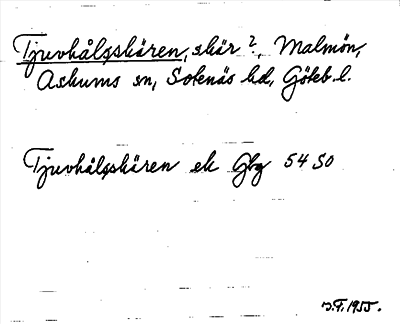 Tjuvhålsskären, skär?, Malmön,
Askums sn, Sotenäs hd, Göteb. l.
Tjuvhålsskären ek Gbg 54 SO
J.F. 1955.